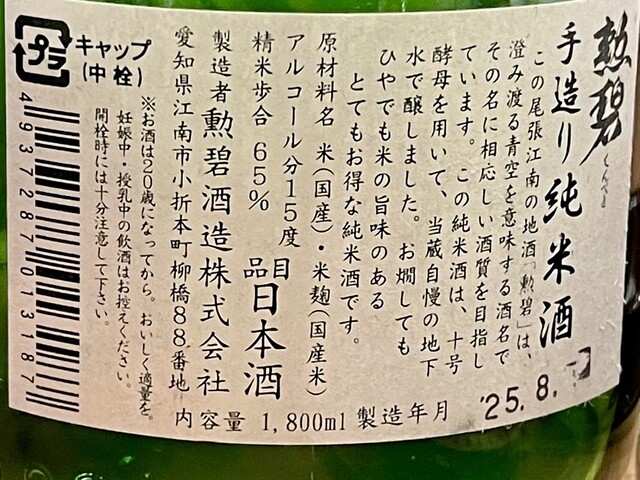 勲碧
くんぺき
手造り純米酒
この尾張江南の地酒「勲碧」は、
澄み渡る青空を意味する酒名で
その名に相応しい酒質を目指し
ています。この純米酒は、十号
酵母を用いて、当蔵自慢の地下
水で醸しました。お燗しても
ひやでも米の旨味のある
とてもお得な純米酒です。
原材料名 米(国産)・米麹(国産米)
アルコール分15度
精米歩合 65%
品目 日本酒
製造者 勲碧酒造株式会社
愛知県江南市小折本町柳橋88番地
※お酒は20歳になってから。おいしく適量を。
妊娠中・授乳中の飲酒はお控えください。
開栓時には十分注意して下さい。
内容量 1,800ml 製造年月 '25.8.
プラ
キャップ
(中栓)
4937287013187